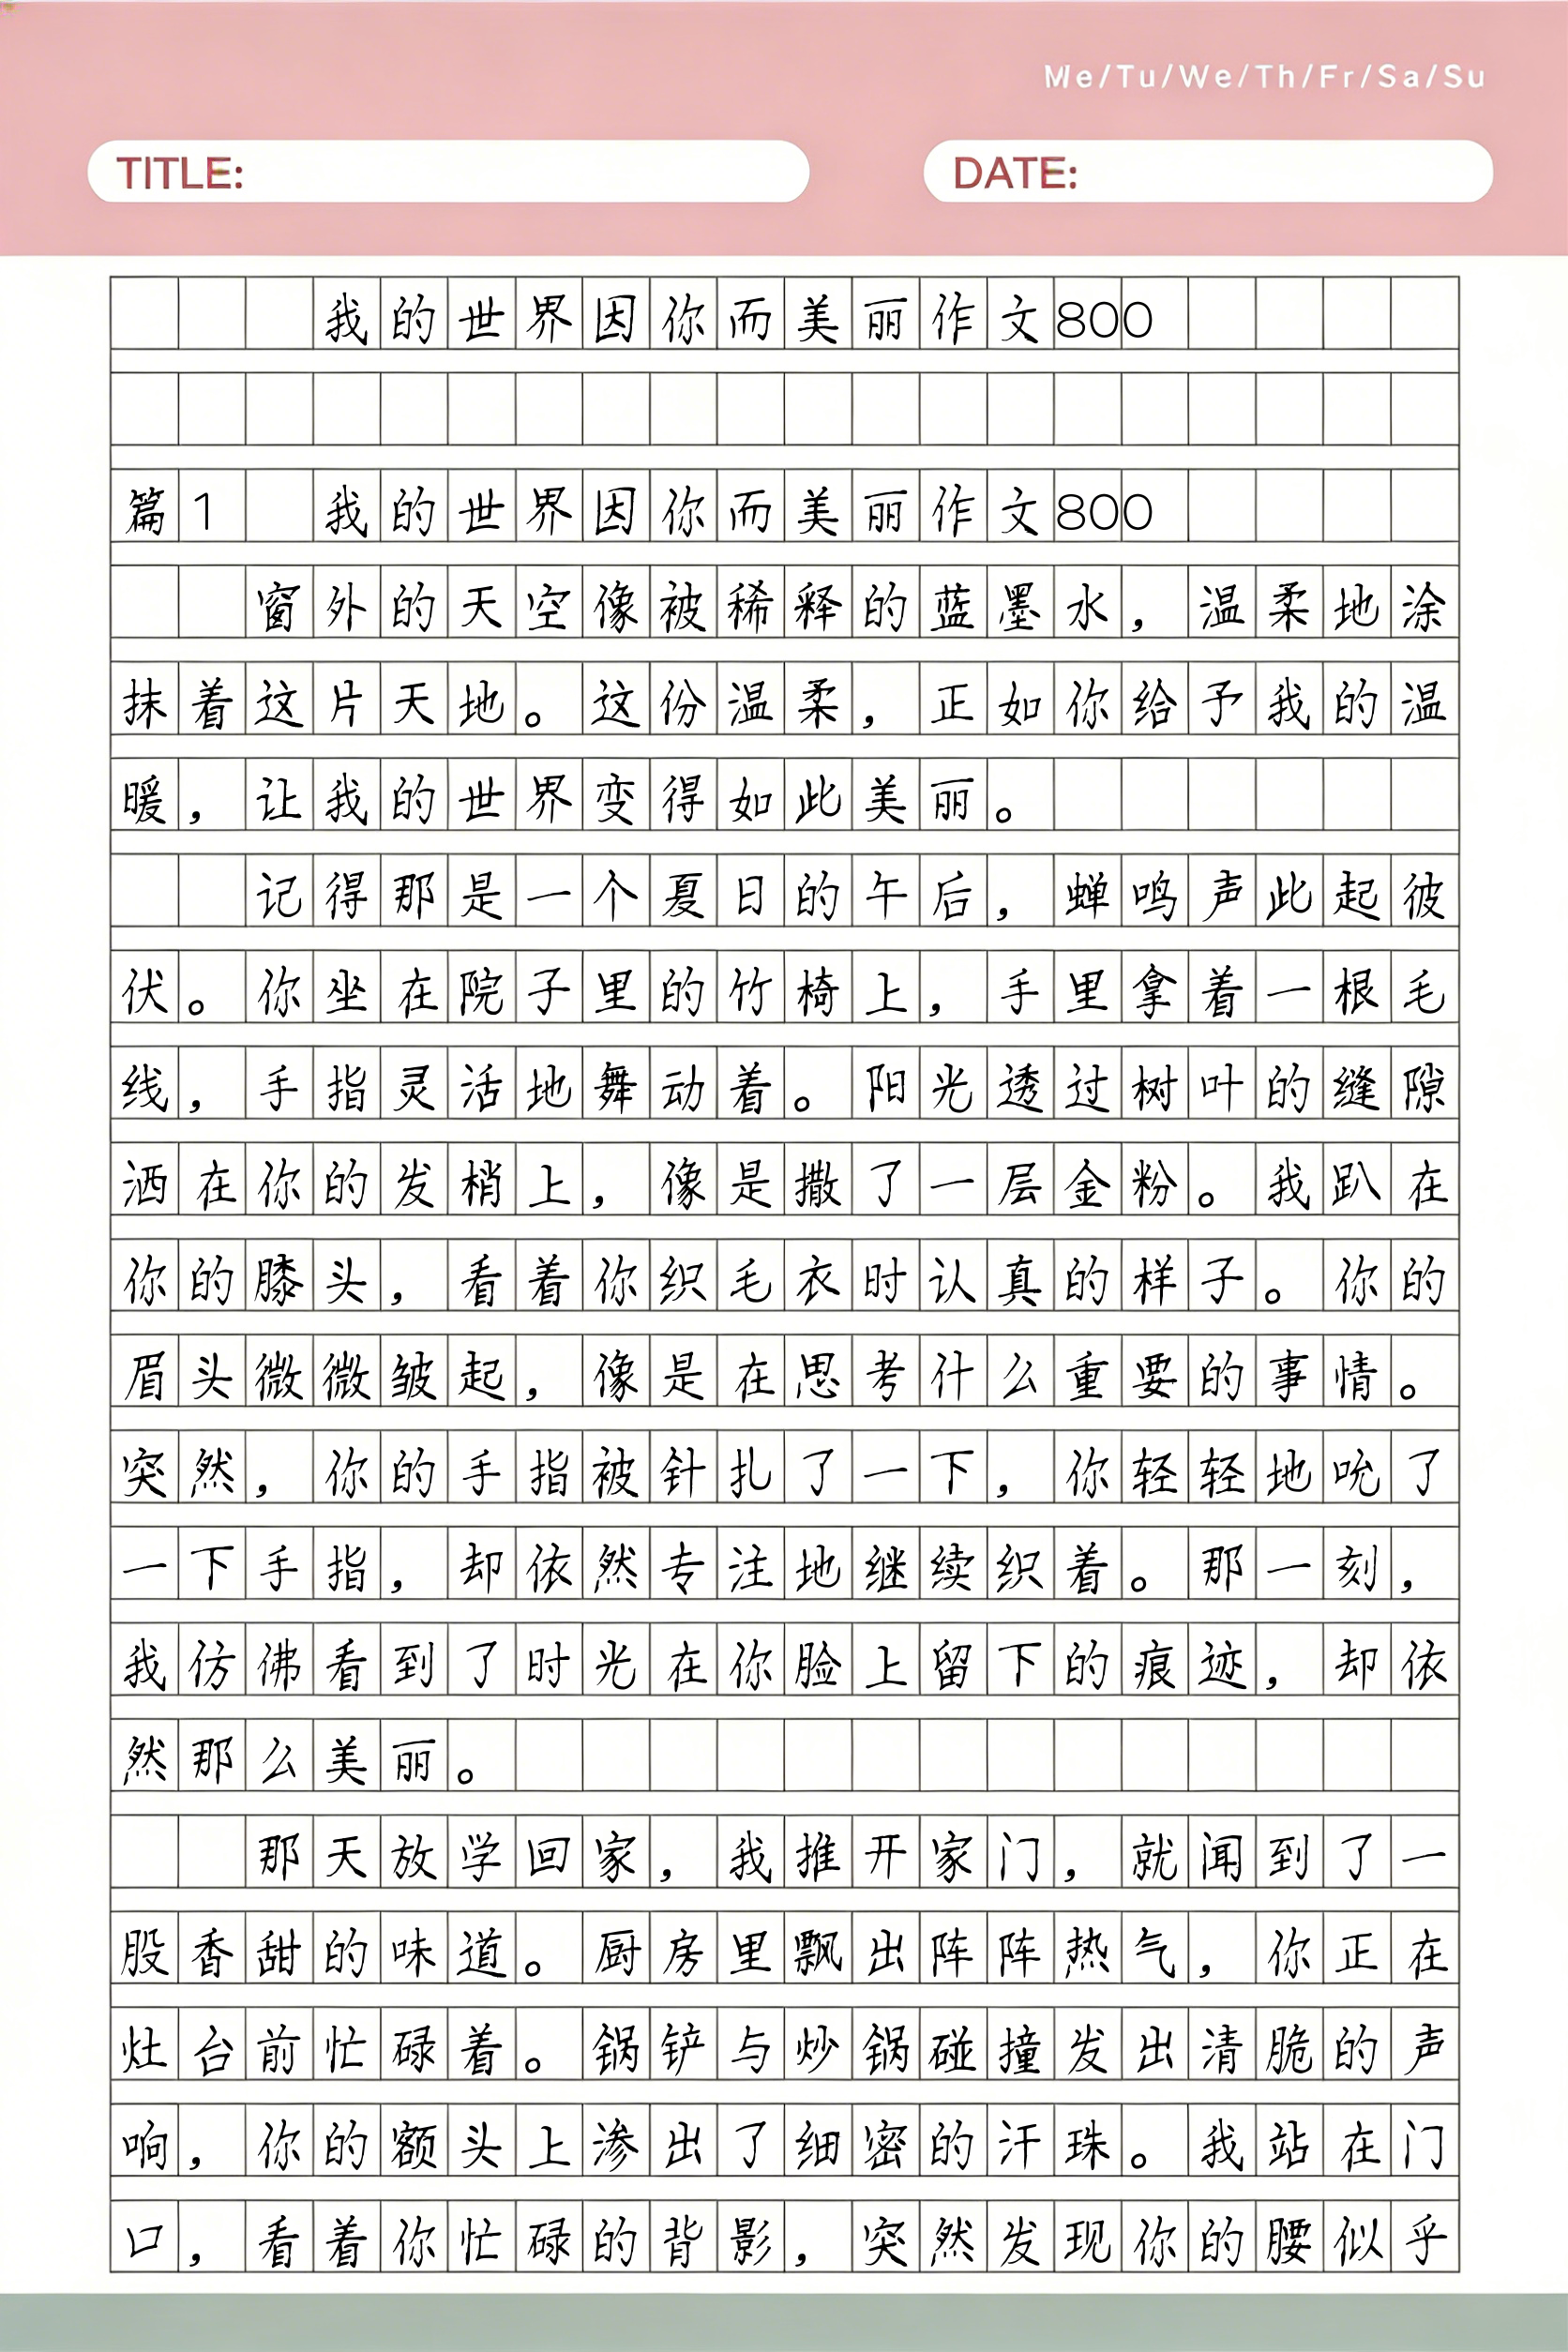 Me/Tu/We/Th/Fr/Sa/Su
TITLE:
DATE:
我的世界因你而美丽作文800
篇1 我的世界因你而美丽作文800
窗外的天空像被稀释的蓝墨水，温柔地涂
抹着这片天地。这份温柔，正如你给予我的温
暖，让我的世界变得如此美丽。
记得那是一个夏日的午后，蝉鸣声此起彼
伏。你坐在院子里的竹椅上，手里拿着一根毛
线，手指灵活地舞动着。阳光透过树叶的缝隙
洒在你的发梢上，像是撒了一层金粉。我趴在
你的膝头，看着你织毛衣时认真的样子。你的
眉头微微皱起，像是在思考什么重要的事情。
突然，你的手指被针扎了一下，你轻轻地吮了
一下手指，却依然专注地继续织着。那一刻，
我仿佛看到了时光在你脸上留下的痕迹，却依
然那么美丽。
那天放学回家，我推开家门，就闻到了一
股香甜的味道。厨房里飘出阵阵热气，你正在
灶台前忙碌着。锅铲与炒锅碰撞发出清脆的声
响，你的额头上渗出了细密的汗珠。我站在门
口，看着你忙碌的背影，突然发现你的腰似乎